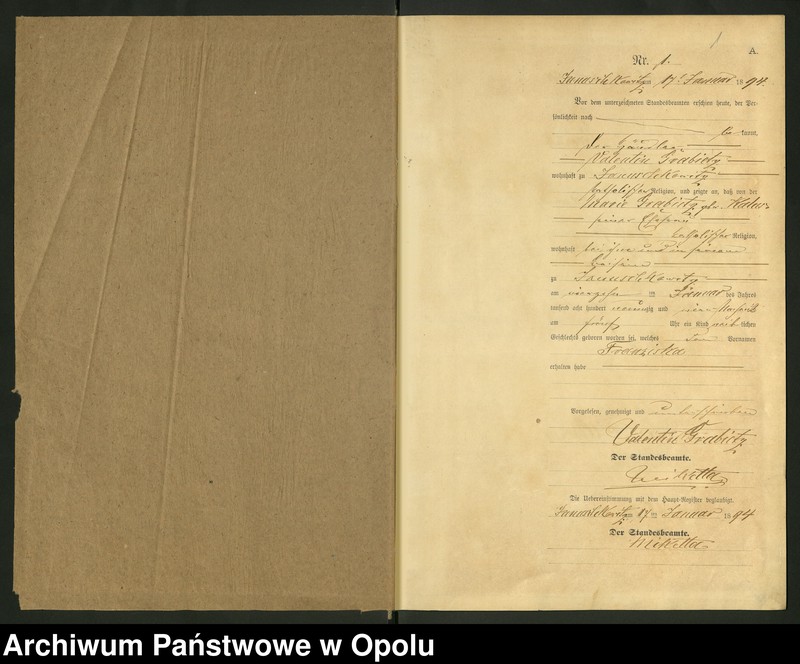 A.
Nr. 1.
Januschkowitz am 17ten Januar 1894.
Vor dem unterzeichneten Standesbeamten erschien heute, der Per-
sönlichkeit nach
be kannt,
der Händler
Valentin Grabietz
wohnhaft zu Januschkowitz
katholischer Religion, und zeigte an, daß von der
Marie Grabietz geb.
seiner Ehefrau
katholischer Religion,
wohnhaft bei ihm und in seinem
zu Januschkowitz
am vierzehn ten Januar des Jahres
tausend acht hundert neunzig und vier
am fünf Uhr ein Kind weib lichen
Geschlechts geboren worden sei, welches den Vornamen
Franziska
erhalten habe
Vorgelesen, genehmigt und unterschrieben
Valentin Grabietz
Der Standesbeamte.
Miketta
Die Uebereinstimmung mit dem Haupt-Register beglaubigt.
Januschkowitz am 17 ten Januar 1894
Der Standesbeamte.
Miketta
Archiwum Państwowe w Opolu